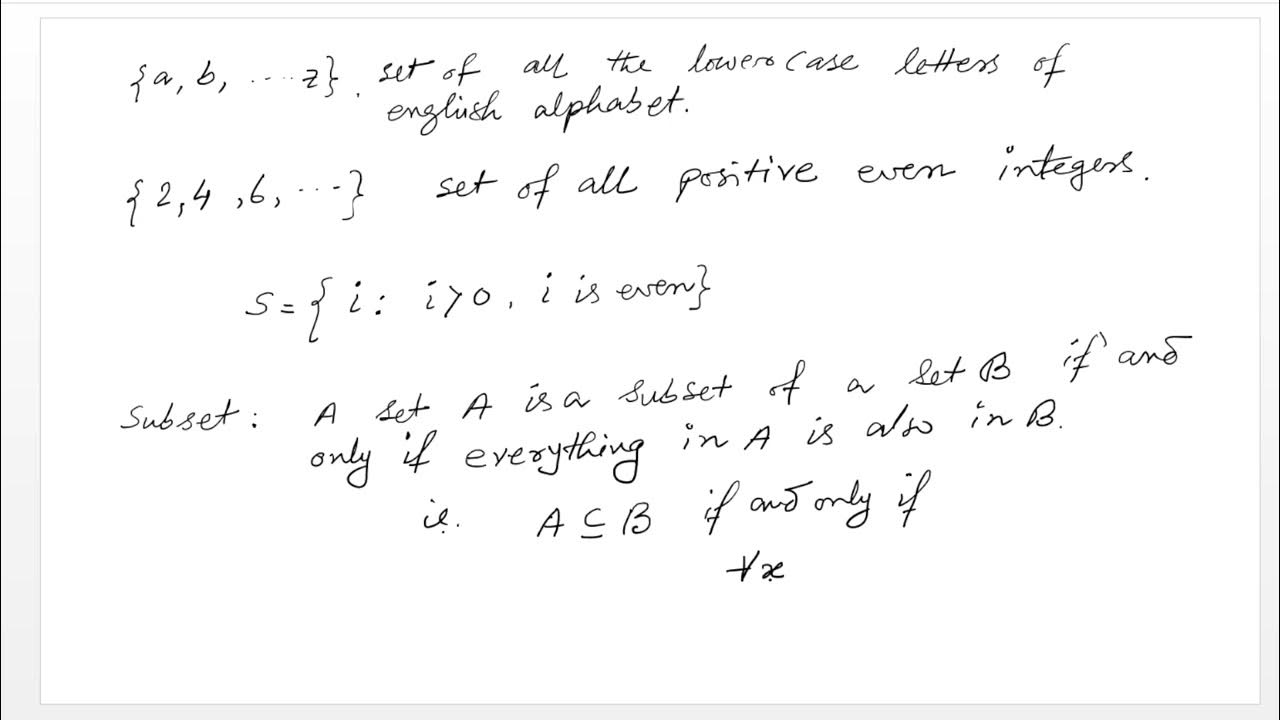 {a, b, ..... z}. set of all the lowercase letters of
english alphabet.
{2, 4, 6, ...} set of all positive even integers.
S = { i : i > 0, i is even}
Subset : A set A is a subset of a set B if and
only if everything in A is also in B.
ie. A ⊆ B if and only if
∀x